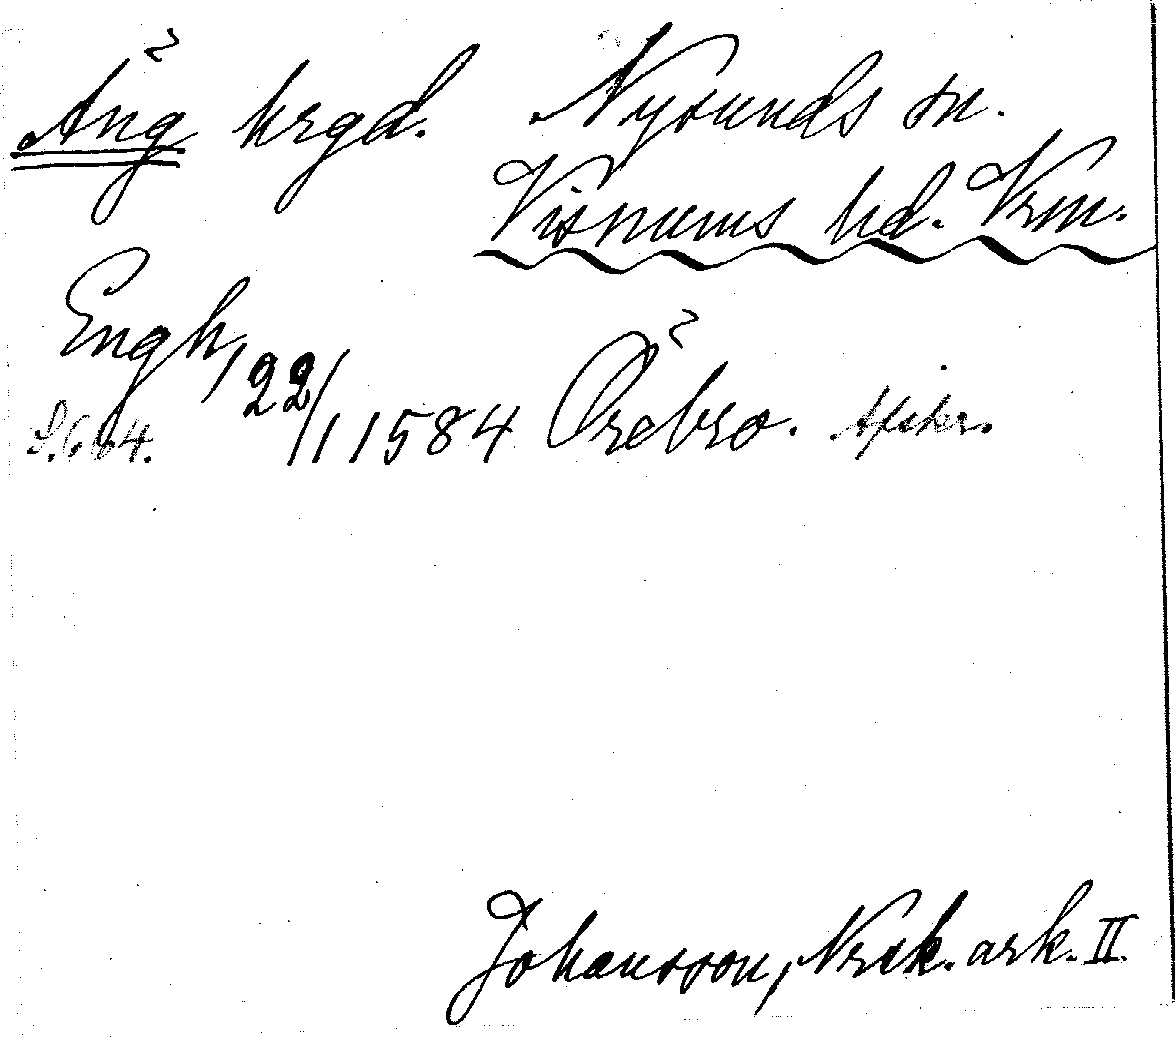 Äng hrgd. Nysunds sn.
Visnums hd. Vrm.
Engh, 22/1 1584 Örebro. Afskr.
S. 664.
Johansson, Nrck. ark. II.